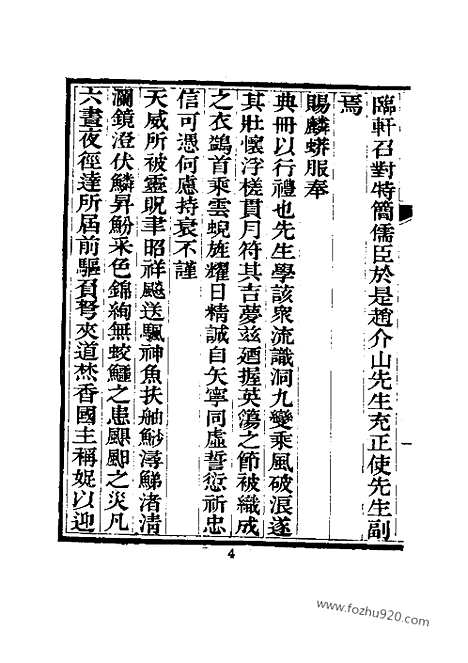 臨軒召對特簡儒臣於是趙介山先生充正使先生副
焉
賜麟蟒服奉
典冊以行禮也先生學該衆流識洞九變乘風破浪遂
其壯懷浮槎貫月符其吉夢茲廼握英蕩之節被織成
之衣鷁首乘雲蜺旌耀日精誠自矢寧同虛誓愆祈忠
信可憑何慮持衰不謹
天威所被靈貺聿昭祥飈送颿神魚扶舳魦潯鯷渚清
瀾鏡澄伏鱗昇魵采色錦絢無蛟鱷之患颶颮之災凡
六晝夜徑達所屆前驅負弩夾道焚香國主稱娖以迎
一
4
www.fozhu920.com